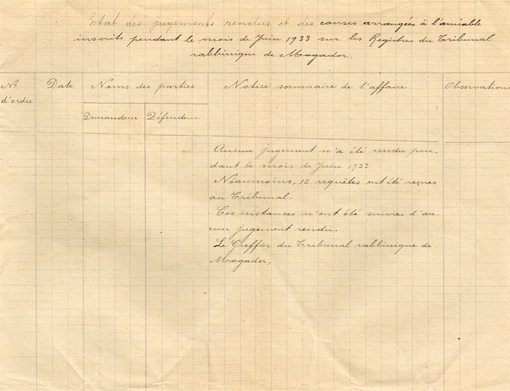 Etat des jugements rendus et des causes arrangées à l'amiable
inscrits pendant le mois de Juin 1933 sur les Registres du Tribunal
rabbinique de Mogador.
N° d'ordre
Date
Noms des parties
Notice sommaire de l'affaire
Observations
Demandeur
Défendeur
Aucun jugement n'a été rendu pen-
dant le mois de Juin 1933
Néanmoins, 12 requêtes ont été reçues
au Tribunal.
Ces instances n'ont été suivies d'au-
cun jugement rendu.
Le Greffier du Tribunal rabbinique de
Mogador.